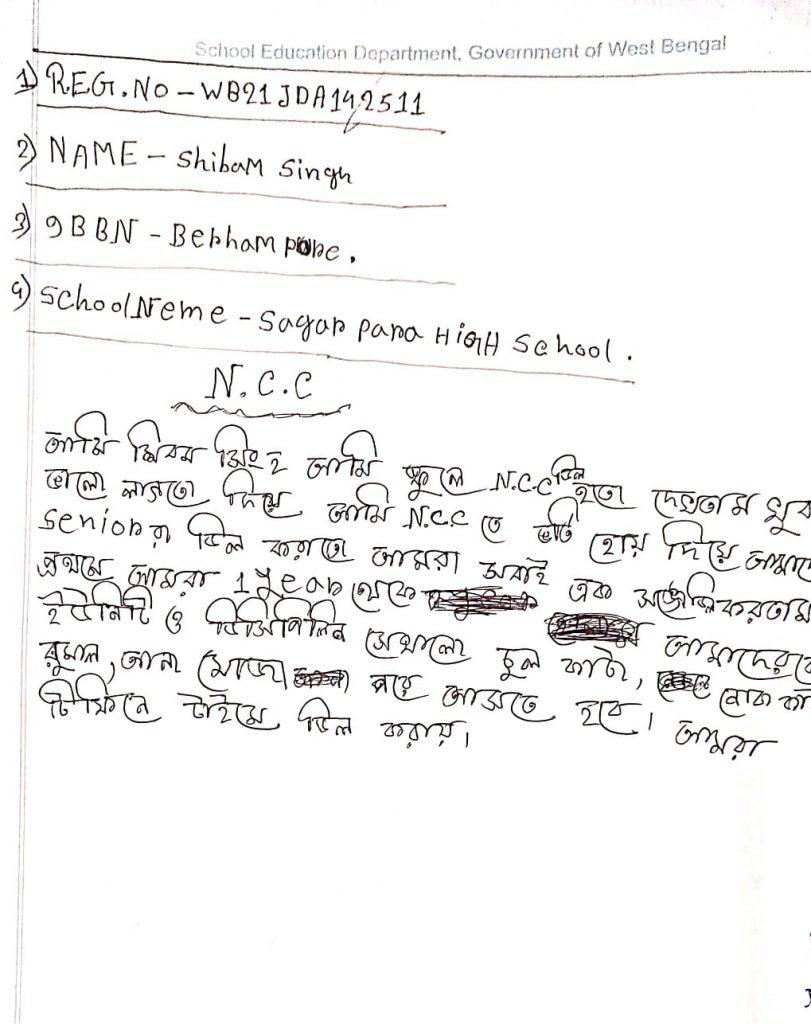 School Education Department, Government of West Bengal
1) REG.NO – WB21JDA142511
2) NAME – Shibam Singh
3) 9 B BN – Berhampore.
4) School Neme – Sagar para HIGH School.
N.C.C
আমি শিবম সিংহ আমি স্কুলে N.C.C ড্রিল হতো দেখতাম খুব
ভালো লাগতো দিয়ে আমি N.C.C তে ভর্তি হোয় দিয়ে আমাদে
Senior রা ড্রিল করাতো আমরা সবাই এক সঙ্গে ড্রিল করতাম
প্রথমে আমরা 1 year থেকে
ইউনিটি ও ডিসিপিলিন সেখালো চুল কাটা, আমাদেরকে
রুমাল, আনা মোজা পরে আসতে হবে। নোক কা
টিফিনে টাইমে ড্রিল করায়। আমরা